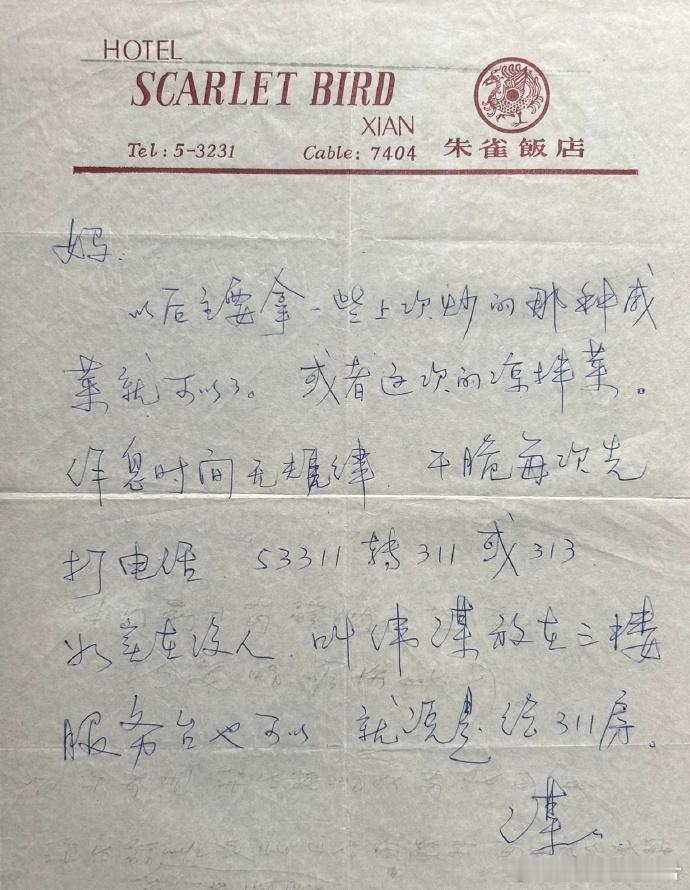 HOTEL
SCARLET BIRD
XIAN
Tel: 5-3231 Cable: 7404 朱雀飯店
妈:
以后主要拿一些上次炒的那种咸
菜就可以了。或者这次的凉拌菜。
作息时间无规律 干脆每次先
打电话 53311 转 311 或 313
如实在没人 叫伟谋放在三楼
服务台也可以 就说是给311房。
谋